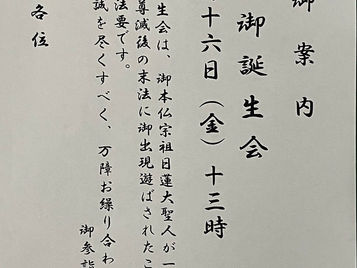 御案内
御誕生会
十六日（金）十三時
生会は、御本仏宗祖日蓮大聖人が一
尊滅後の末法に御出現遊ばされたこ
法要です。
誠を尽くすべく、万障お繰り合わ
御参詣
各位